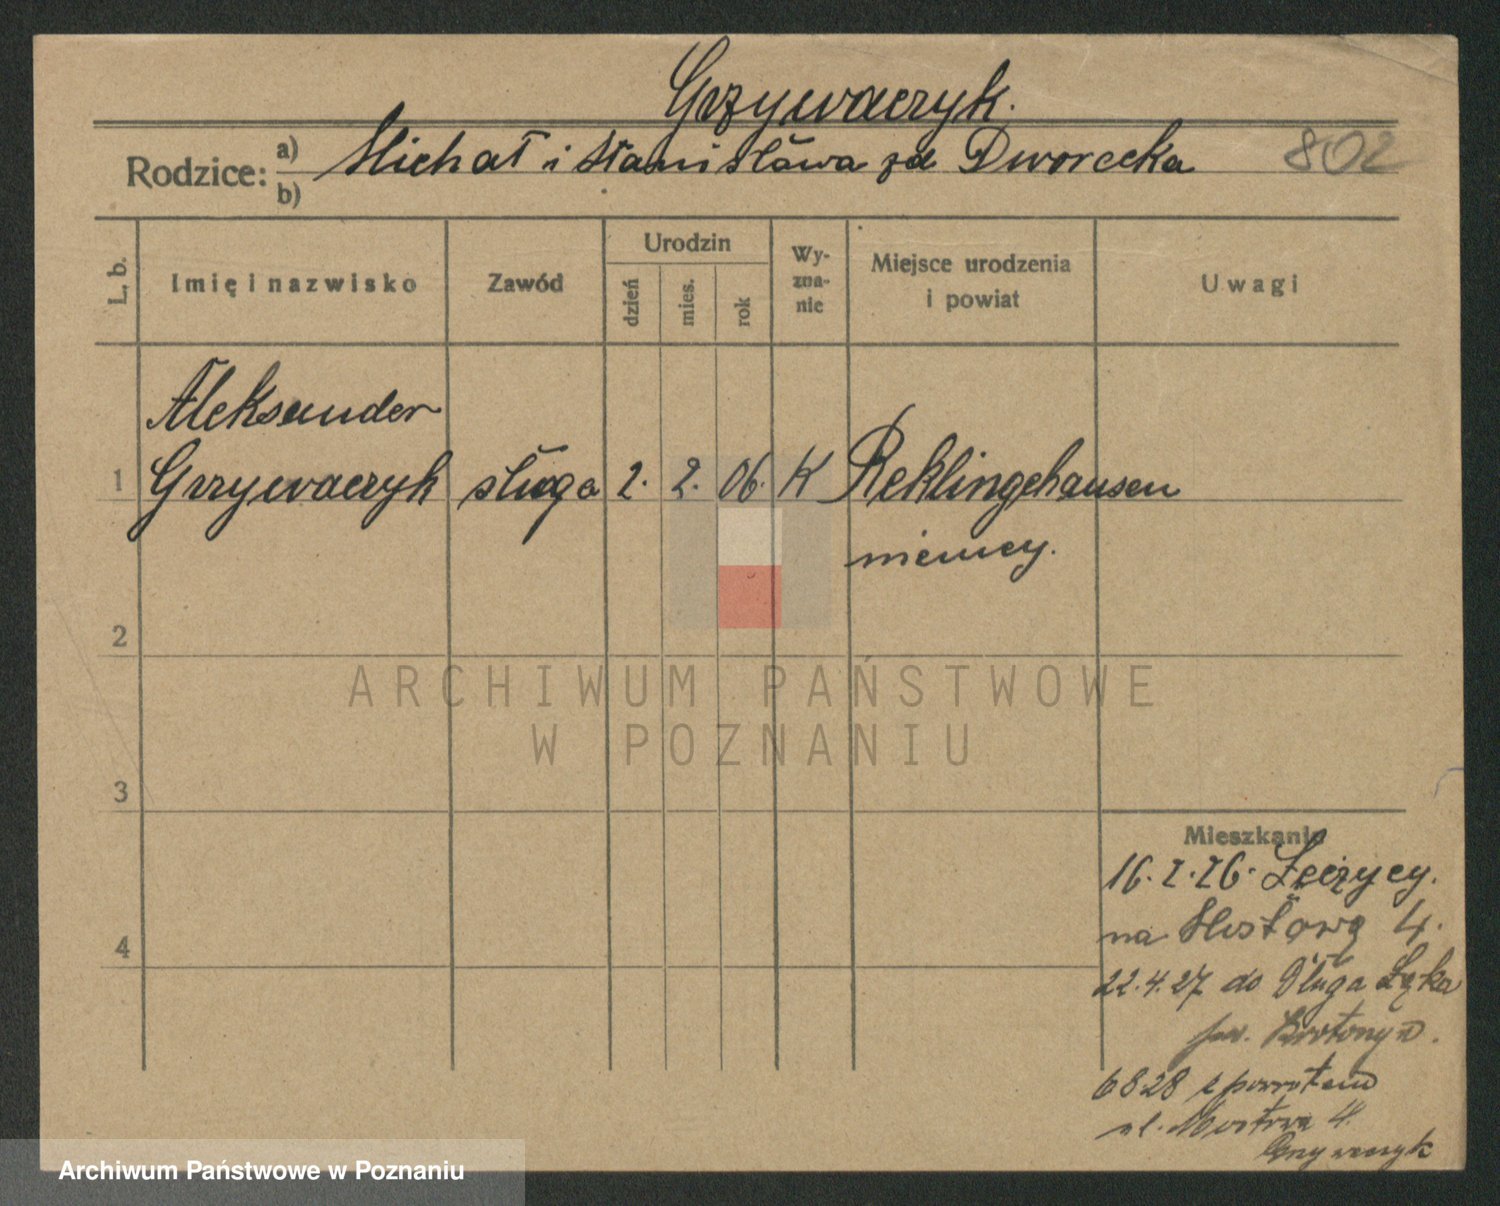 Grzywaczyk.
802
Rodzice: a) b) Michał i Stanisława zd Dworecka
L. b.
Imię i nazwisko
Zawód
Urodzin
dzień
mies.
rok
Wy-
zna-
nie
Miejsce urodzenia
i powiat
Uwagi
Aleksander
1 Grzywaczyk sługa 2. 2. 06. K Reklingehausen
niemcy.
2
ARCHIWUM PAŃSTWOWE
W POZNANIU
3
4
Mieszkanie
16.I.26. Łęczycy.
na Mostową 4.
22.4.27 do Długa Łąka
pow.
6 8 28 z powrotem
ul. Mostowa 4.
Grzywaczyk
Archiwum Państwowe w Poznaniu